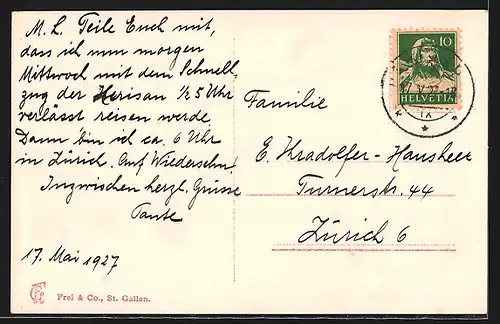 M. L. Teile Euch mit,
dass ich nun morgen
Mittwoch mit dem Schnell,
zug der Herisau 1/2 5 Uhr
verlässt reisen werde
Dann bin ich ca. 6 Uhr
in Zürich. Auf Wiedersehn!
Inzwischen herzl. Grüsse
Tante
17. Mai 1927
Frei & Co., St. Gallen.
10
HELVETIA
IX
Familie
E. Kradolfer-Hausheer
Turnerstr. 44
Zürich 6